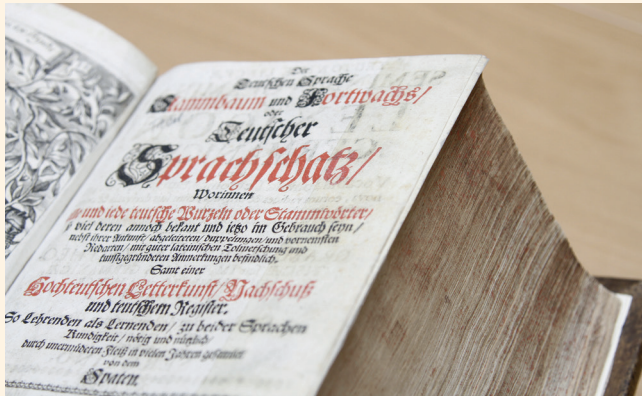 Der
Teutschen Sprache
Stammbaum und Fortwachs/
oder
Teutscher
Sprachschatz/
Worinnen
alle und iede teutsche Wurzeln oder Stammwörter/
so viel deren annoch bekant und ietzo im Gebrauch seyn/
nebst ihrer Ankunft/ abgeleiteten/ duppelungen/ und vornemsten
Redarten/ mit guter lateinischen Tolmetschung und
kunstgegründeten Anmerkungen befindlich.
Samt einer
Hochteutschen Letterkunst/ Nachschuß
und teutschem Register.
So Lehrenden als Lernenden/ zu beider Sprachen
Kundigkeit/ nötig und nützlich/
durch unermüdeten Fleiß in vielen Jahren gesamlet
von dem
Spaten.